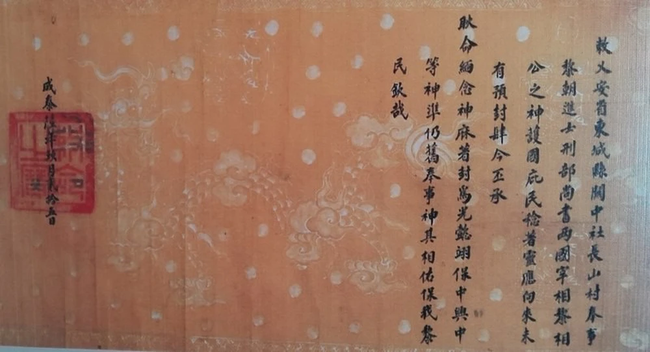 敕乂安省東城縣關中社長山村奉事
黎朝進士刑部尚書两國宰相黎相
公之神護國庇民稔著靈應向來未
有預封肆今丕承
耿命緬念神庥著封爲光懿翊保中興中
等神準仍舊奉事神其相佑保我黎
民欽哉
成泰年玖月貳拾五日